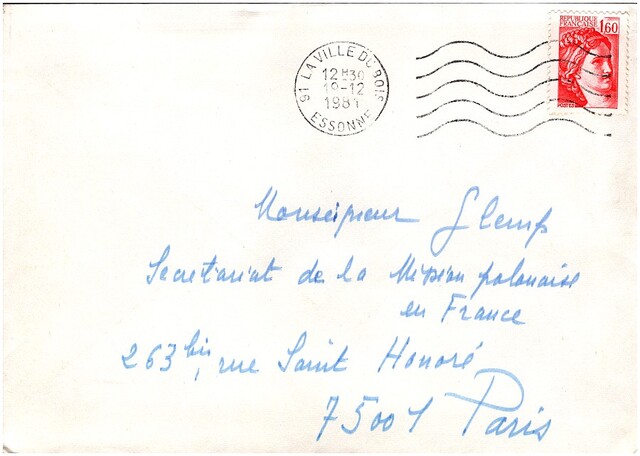 RÉPUBLIQUE
FRANÇAISE 1,60
POSTES
91 LA VILLE DU BOIS
12H30
19-12
1981
ESSONNE
Monseigneur Glemp
Secrétariat de la Mission polonaise
en France
263 bis, rue Saint Honoré
75001 Paris